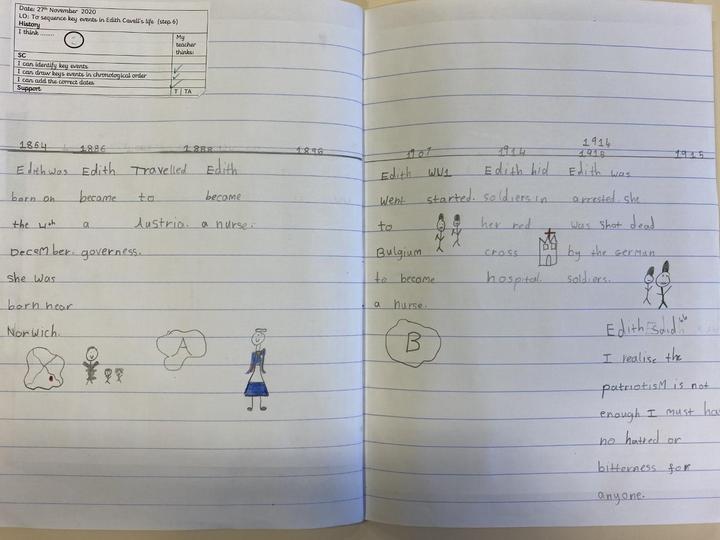 Date: 27th November 2020
LO: To sequence key events in Edith Cavell's life (step 6)
History
I think ........
My teacher thinks:
SC
I can identify key events
I can draw keys events in chronological order
I can add the correct dates
Support T TA
1864 1886 1888 1896
Edith was Edith Travelled Edith
born on became to became
the 4th a Austria. a nurse.
December. governess.
she was
born near
Norwich.
A
1914
1907 1914 1915 1915
Edith WW1 Edith hid Edith was
went started. soldiers in arrested. she
to her red was shot dead
Bulgium cross by the German
to become hospital. soldiers.
a nurse.
B
Edith said
I realise the
patriotism is not
enough I must
no hatred or
bitterness for
anyone.